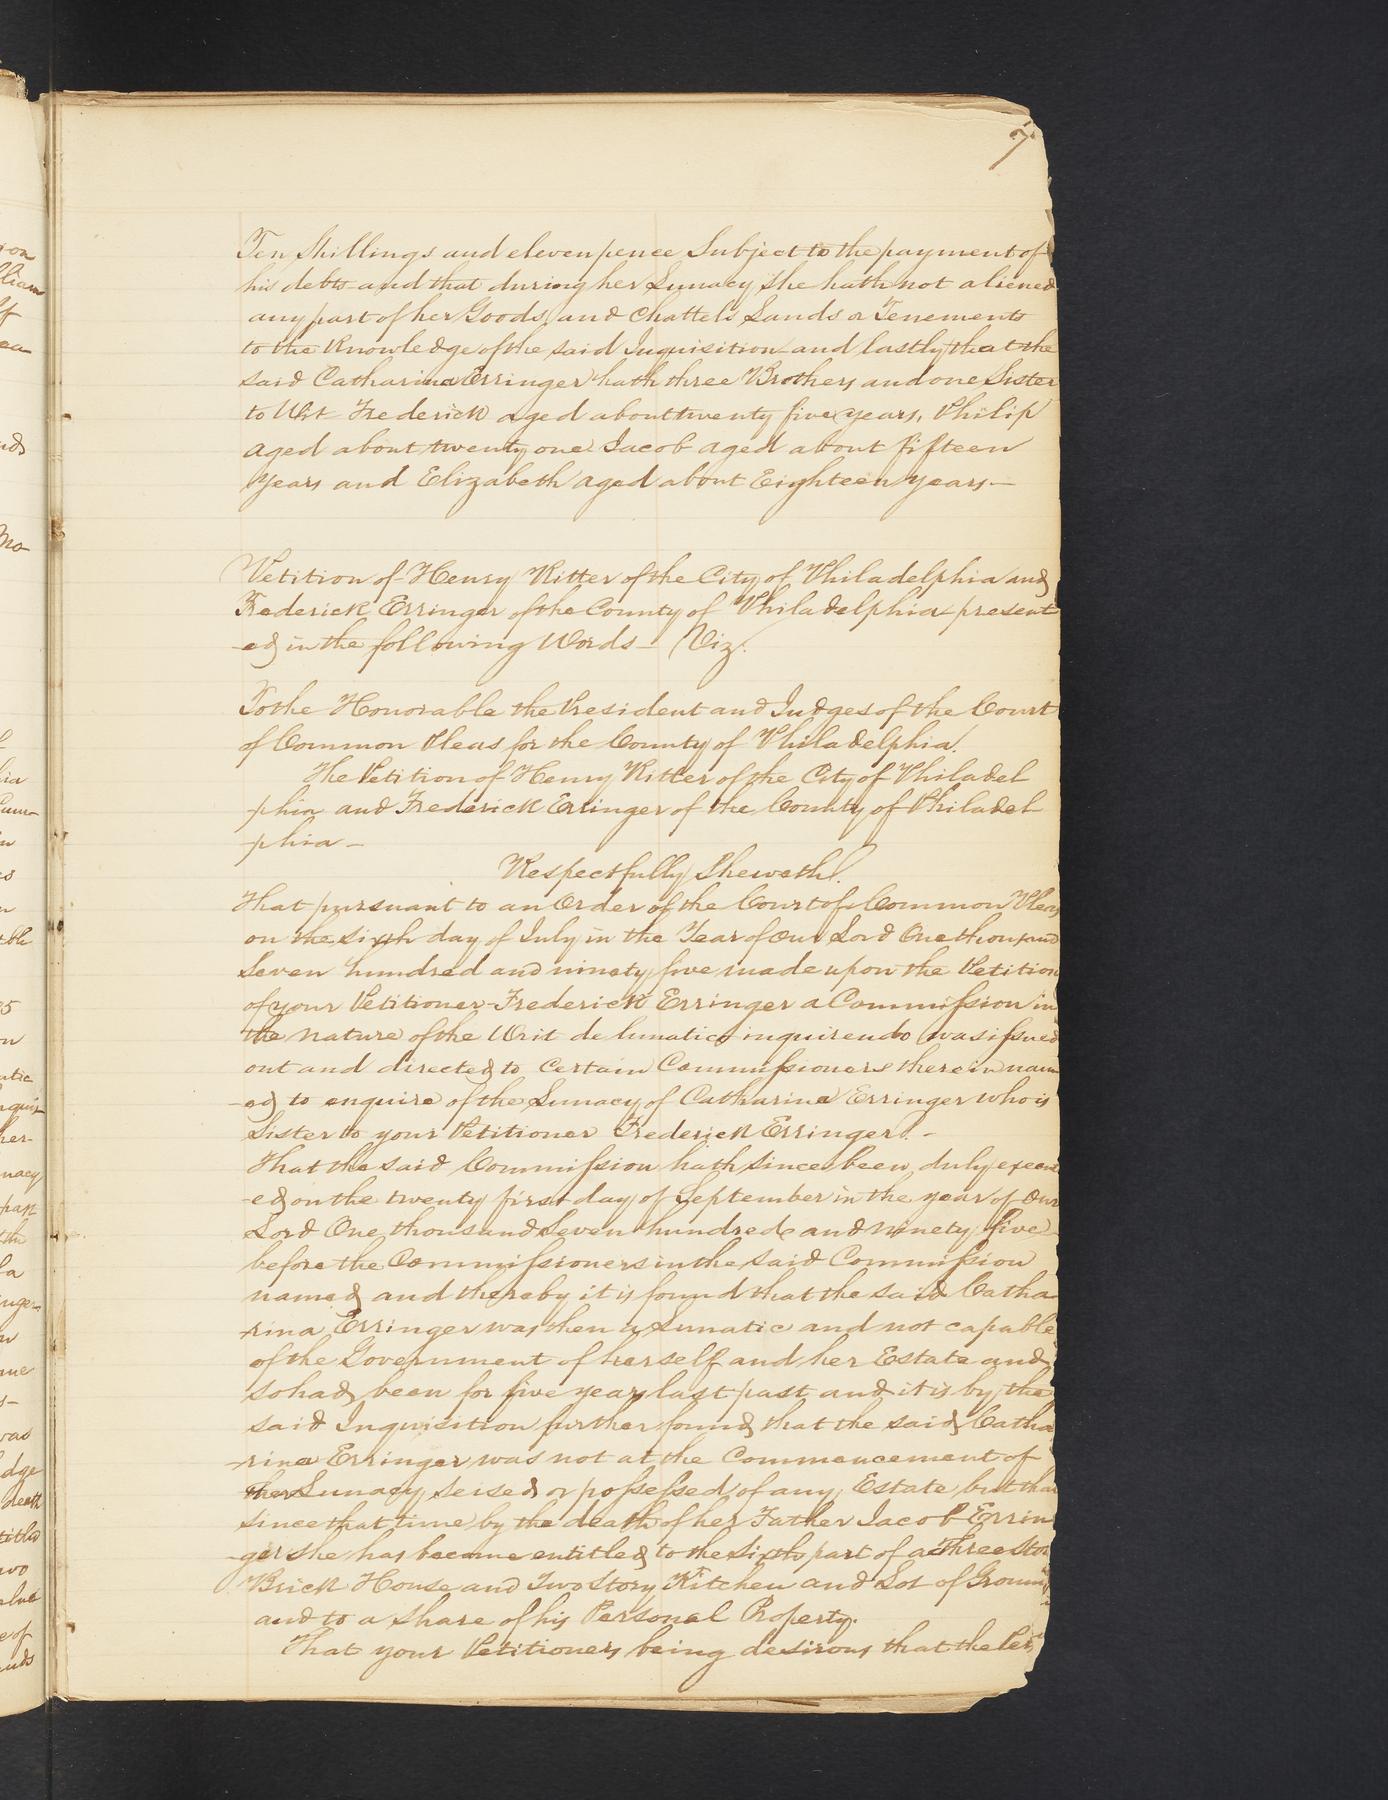 7
Ten Shillings and eleven pence Subject to the payment of
his debts and that during her Lunacy She hath not aliened
any part of her Goods and Chattels Lands or Tenements
to the Knowledge of the said Inquisition and lastly that the
said Catharina Erringer hath three Brothers and one Sister
to Wit Frederick aged about twenty five years, Philip
aged about twenty one Jacob aged about fifteen
Years and Elizabeth aged about Eighteen years—
Petition of Henry Ritter of the City of Philadelphia and
Frederick Erringer of the County of Philadelphia present
-ed in the following Words— Viz.
To the Honorable the President and Judges of the Court
of Common Pleas for the County of Philadelphia.
The Petition of Henry Ritter of the City of Philadel
-phia and Frederick Erringer of the County of Philadel
-phia—
Respectfully Sheweth.
That pursuant to an Order of the Court of Common Pleas
on the sixth day of July in the Year of Our Lord One thousand
Seven hundred and ninety five made upon the Petition
of your Petitioner Frederick Erringer a Commission in
the nature of the Writ de lunatico inquirendo was issued
out and directed to Certain Commissioners therein nam
-ed to enquire of the Lunacy of Catharina Erringer who is
Sister to your Petitioner Frederick Erringer. -
That the said Commission hath since been duly execut
-ed on the twenty first day of September in the year of Our
Lord One thousand Seven hundred and ninety five
before the Commissioners in the said Commission
named and thereby it is found that the said Catha
-rina Erringer was then a Lunatic and not capable
of the Government of herself and her Estate and
so had been for five years last past and it is by the
said Inquisition further found that the said Catha
-rina Erringer was not at the Commencement of
her Lunacy Seised or possessed of any Estate but that
since that time by the death of her Father Jacob Errin
-ger she has become entitled to the sixth part of a Three Stor
Brick House and Two Story Kitchen and Lot of Ground
and to a Share of his Personal Property.
That your Petitioners being desirous that the Per